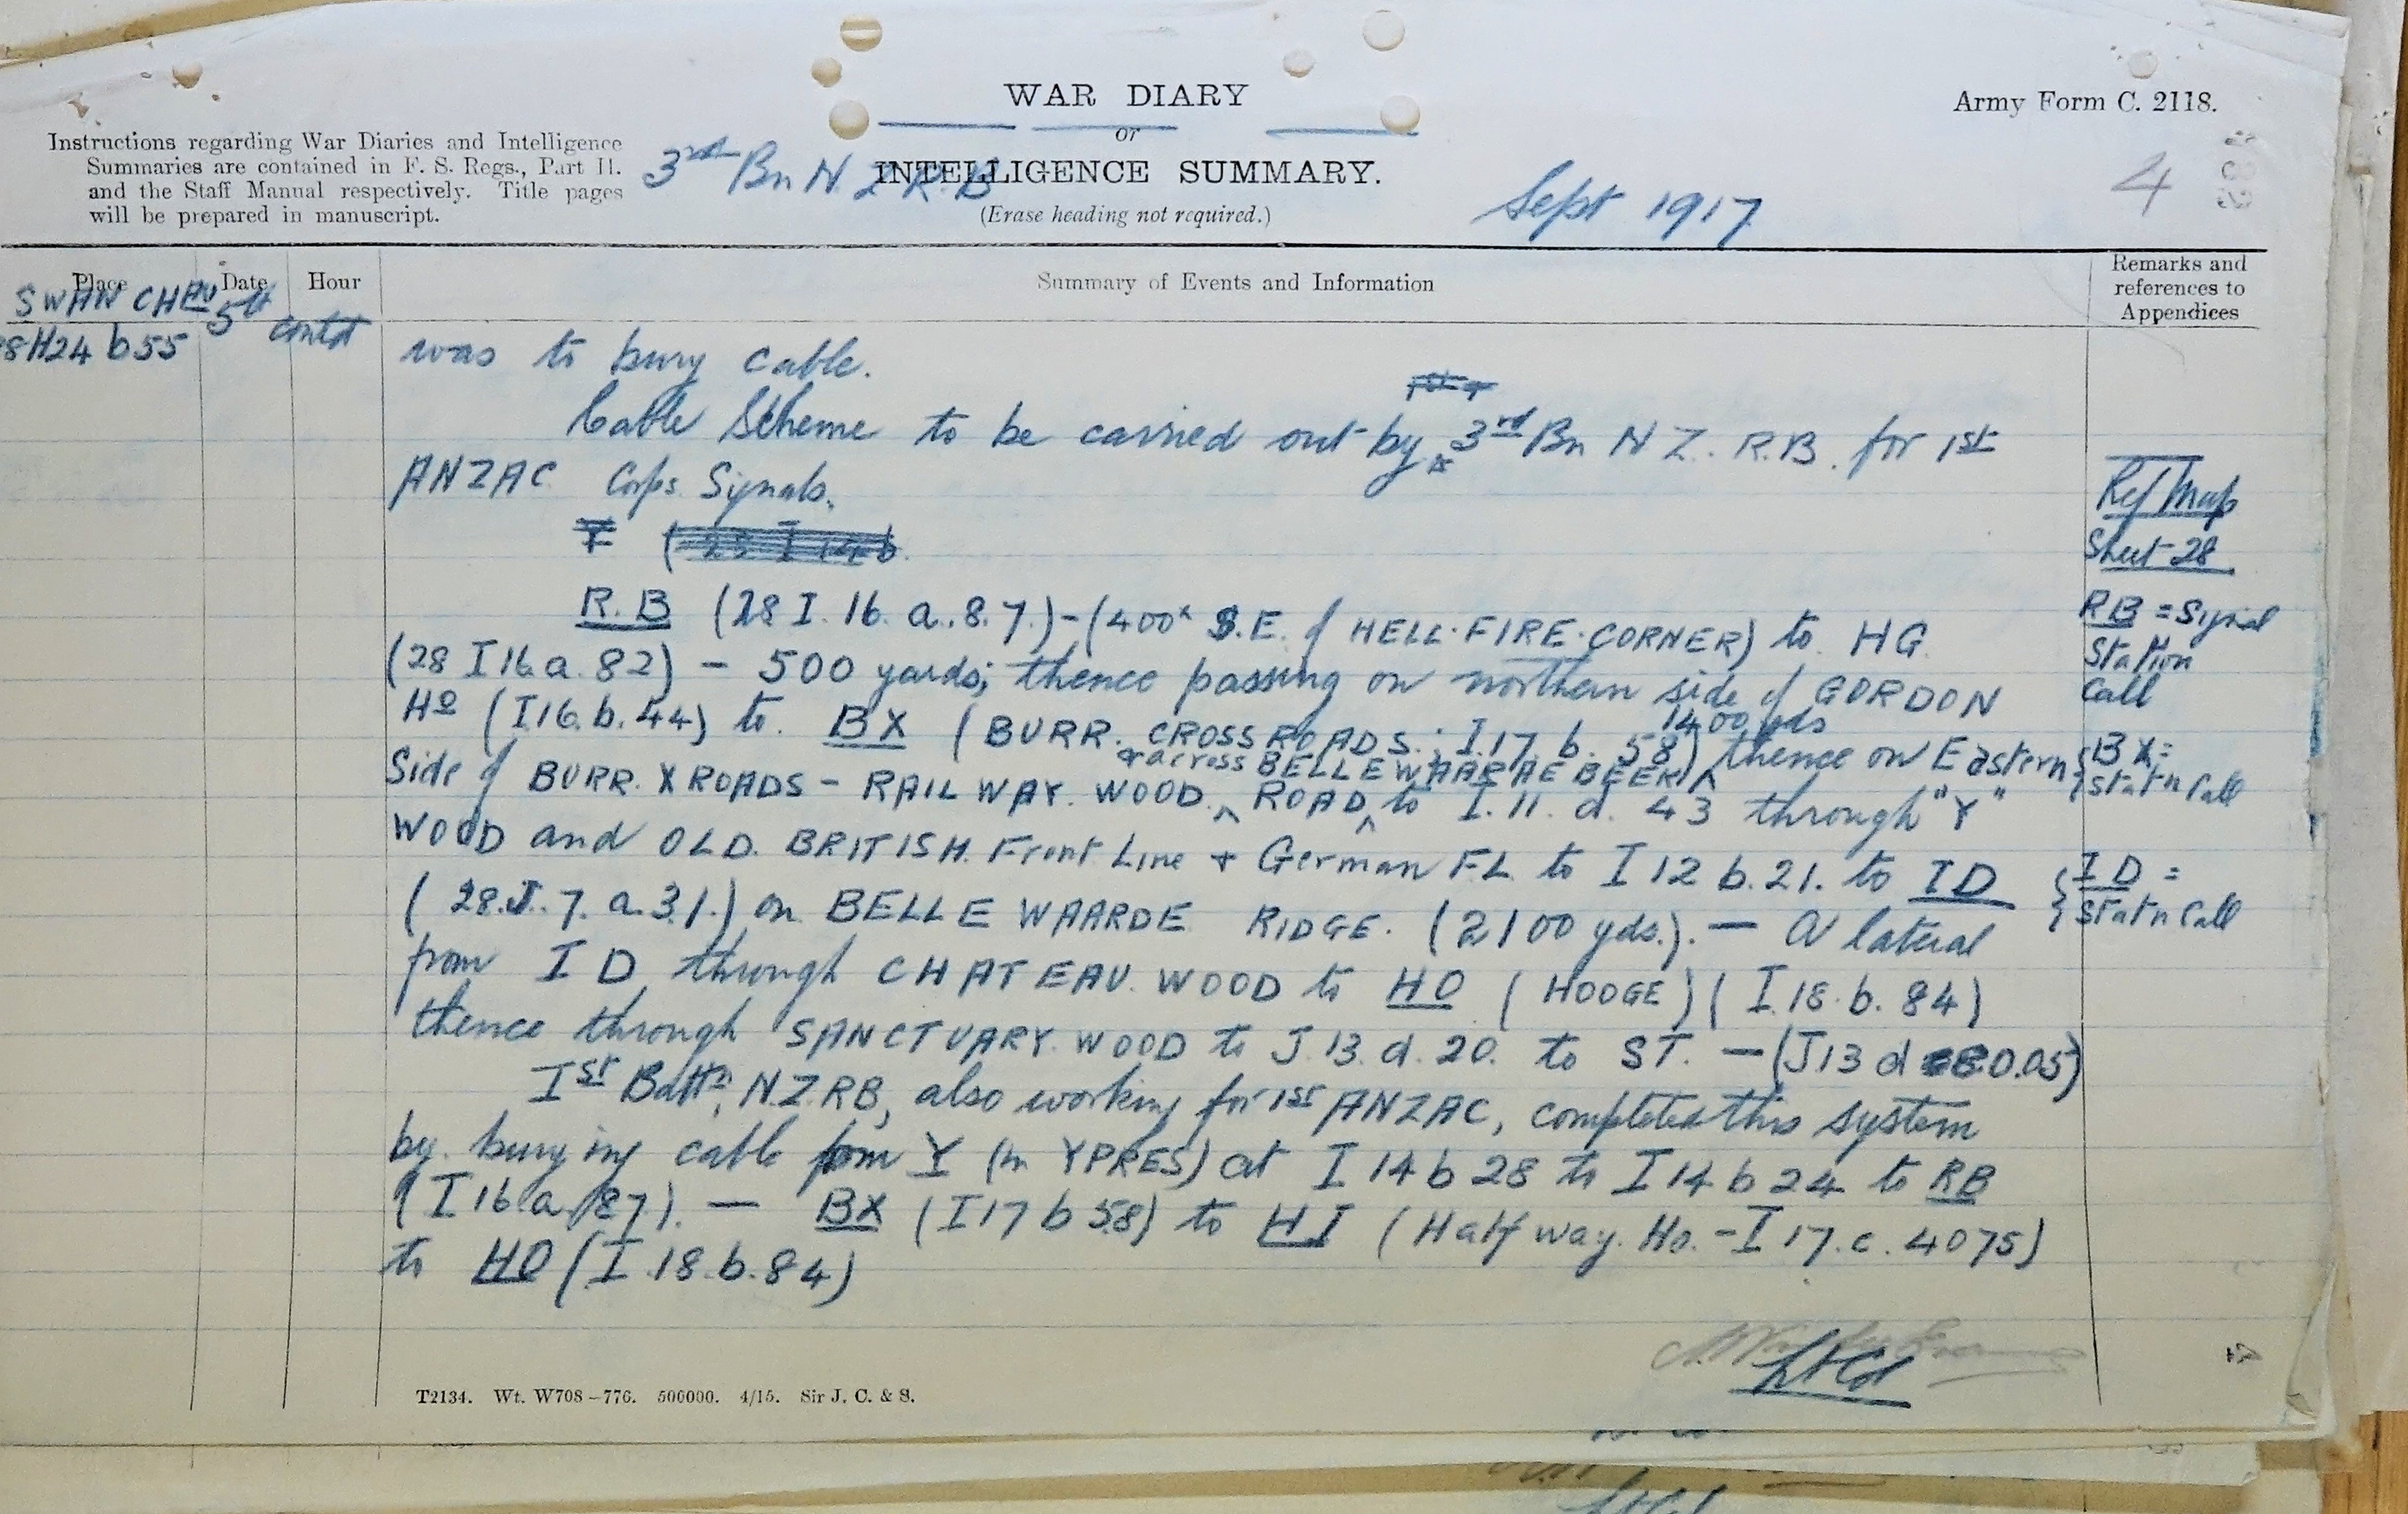 WAR DIARY
or
INTELLIGENCE SUMMARY.
(Erase heading not required.)
Army Form C. 2118.
Instructions regarding War Diaries and Intelligence
Summaries are contained in F. S. Regs., Part II.
and the Staff Manual respectively. Title pages
will be prepared in manuscript.
3rd Bn N Z R B
Sept 1917
4
Place
Date
Hour
Summary of Events and Information
Remarks and
references to
Appendices
SWAN CHAU
28H24 b55
5th
contd
was to bury cable.
Cable Scheme to be carried out by 3rd Bn N Z. R.B. for 1st
ANZAC Corps Signals.
Y (28 I 14 b
R.B (28 I. 16. a. 8. 7.) - (400x S.E. of HELL-FIRE-CORNER) to HG
(28 I 16 a. 82) - 500 yards; thence passing on northern side of GORDON
Ho (I16. b. 44) to BX (BURR. CROSS ROADS. I.17. b. 58) 1400 yds thence on Eastern
& across BELLEWAARDE BEEK
Side of BURR. X ROADS - RAILWAY. WOOD. ROAD, to I. 11. d. 43 through "Y"
WOOD and OLD. BRITISH. Front Line + German FL to I 12 b. 21. to ID
(28. J. 7. a. 31.) on BELLEWAARDE RIDGE. (2100 yds.). — A lateral
from I D through CHATEAU. WOOD to HO (HOOGE) (I.18. b. 84)
thence through SANCTUARY. WOOD to J. 13. d. 20. to ST. — (J13 d 80.05)
1st Battn, N.Z.RB, also working for 1st ANZAC, completed this system
by burying cable from Y (in YPRES) at I 14 b 28 to I 14 b 24 to RB
(I 16. a. 87). — BX (I17 b 58) to HI (Half way. Ho. - I 17. c. 4075)
to HO (I. 18. b. 84)
Ref Map
Sheet 28
RB = Signal
Station
Call
BX =
Statn Call
ID =
Statn Call
Lt Col
T2134. Wt. W708—776. 500000. 4/15. Sir J. C. & S.